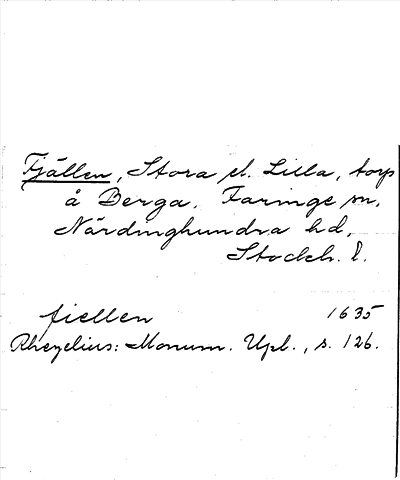 Fjällen, Stora o. Lilla, torp
å Berga. Faringe sn,
Närdinghundra hd,
Stockh. l.
fiellen 1635
Rhezelius: Monum. Upl., s. 126.